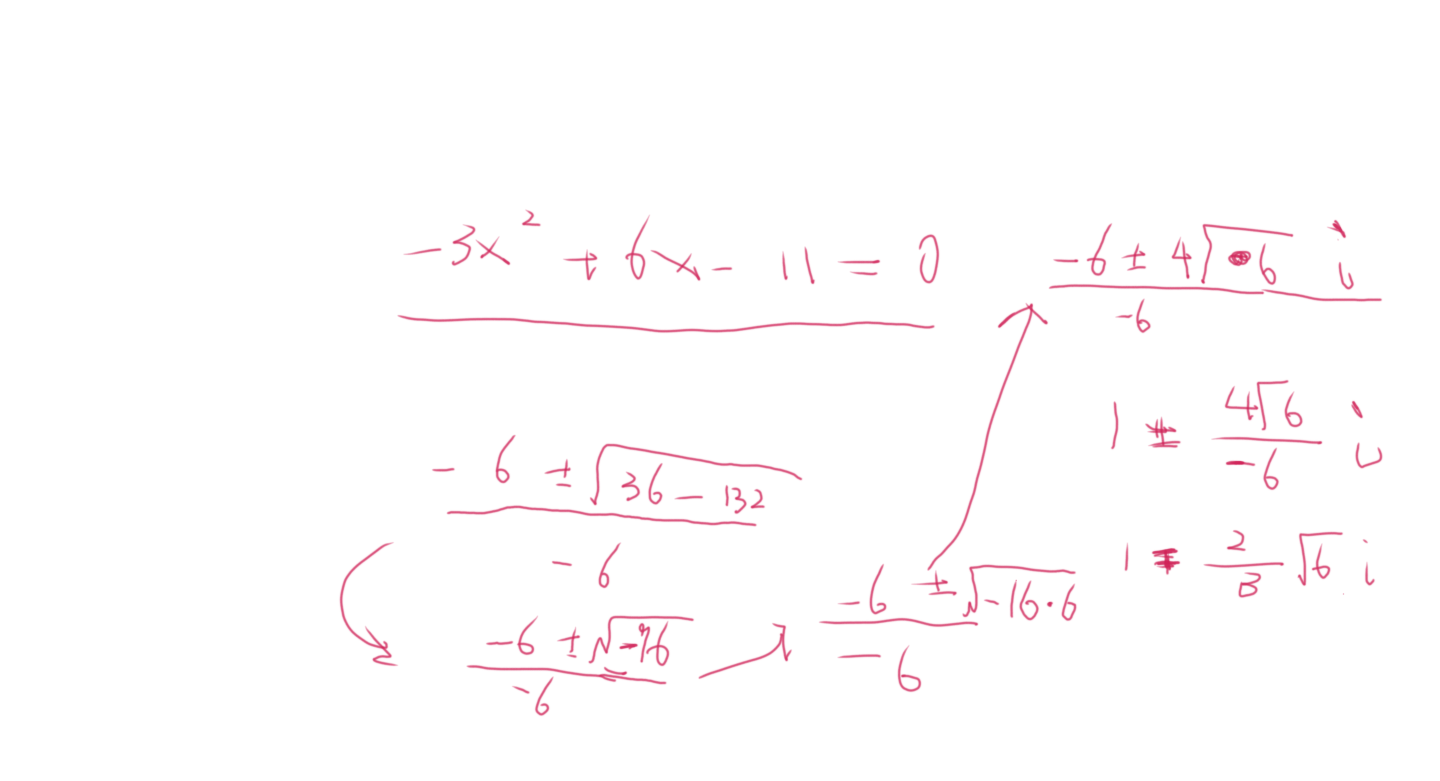 -3x² + 6x - 11 = 0
- 6 ± √(36 - 132)
- 6
-6 ± √(-96)
-6
-6 ± √(-16·6)
- 6
-6 ± 4√6 i
-6
1 ± 4√6 / -6 i
1 ∓ 2/3 √6 i